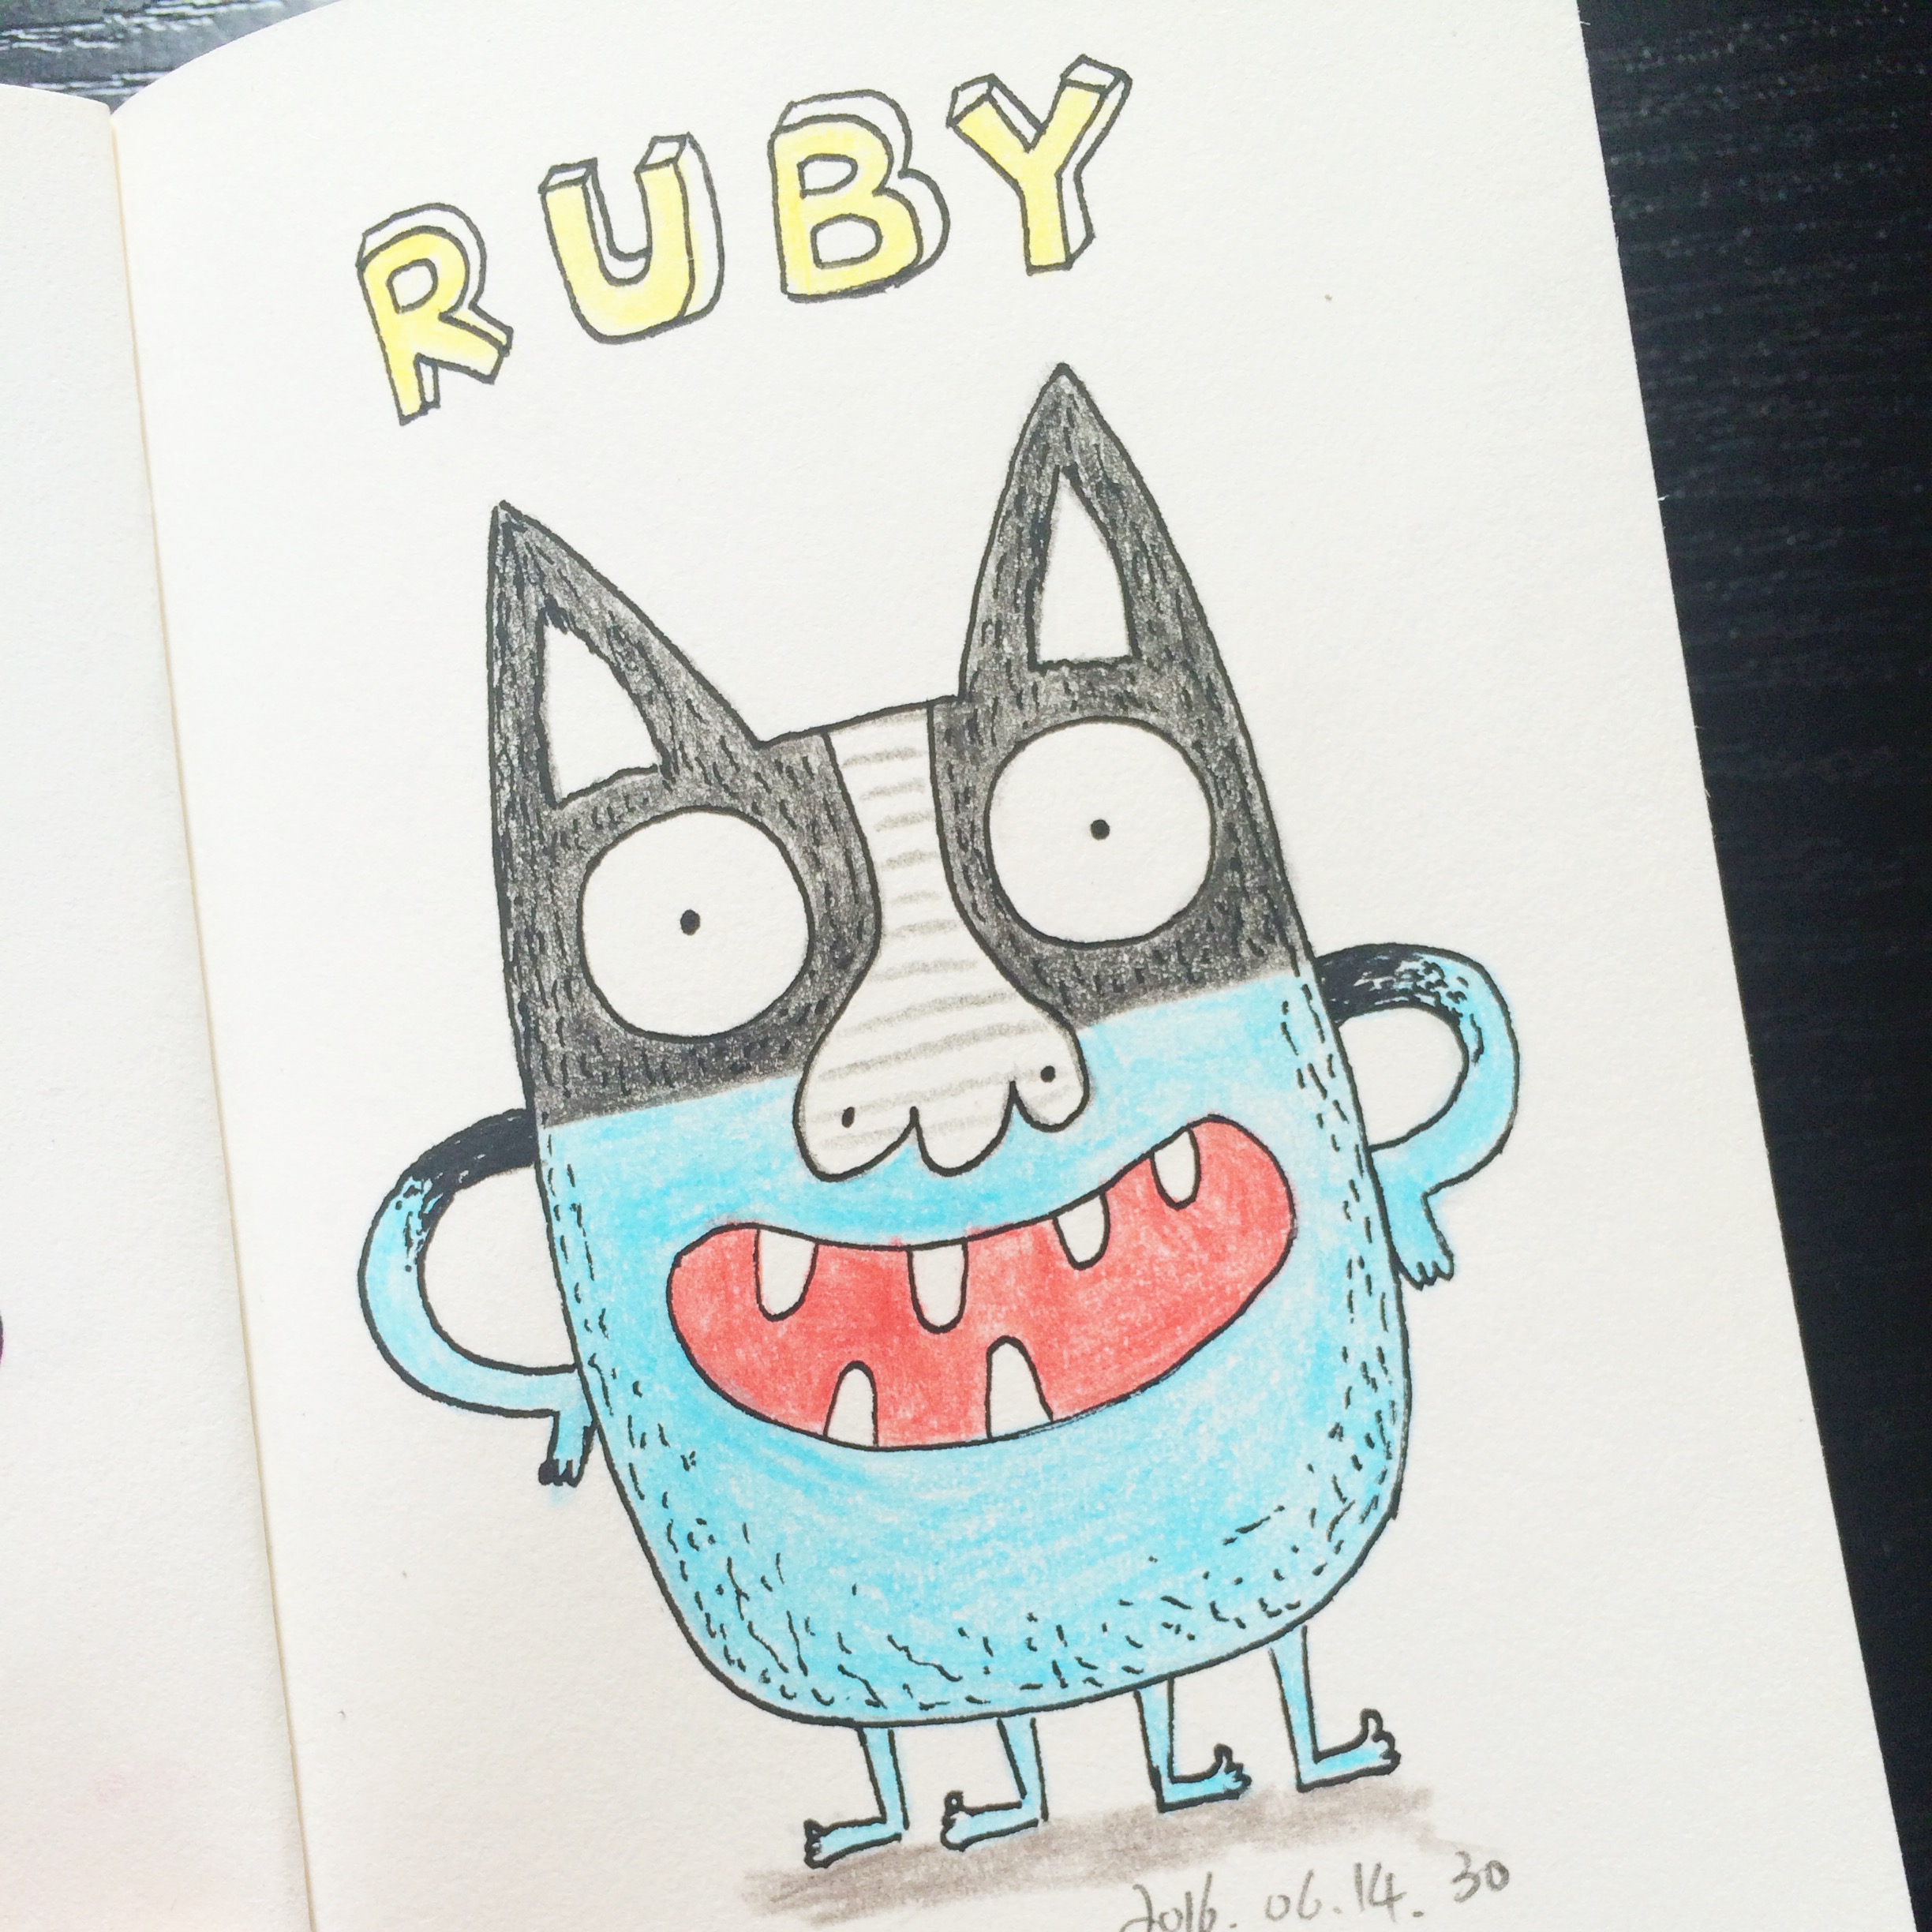 RUBY
2016. 06.14. 30